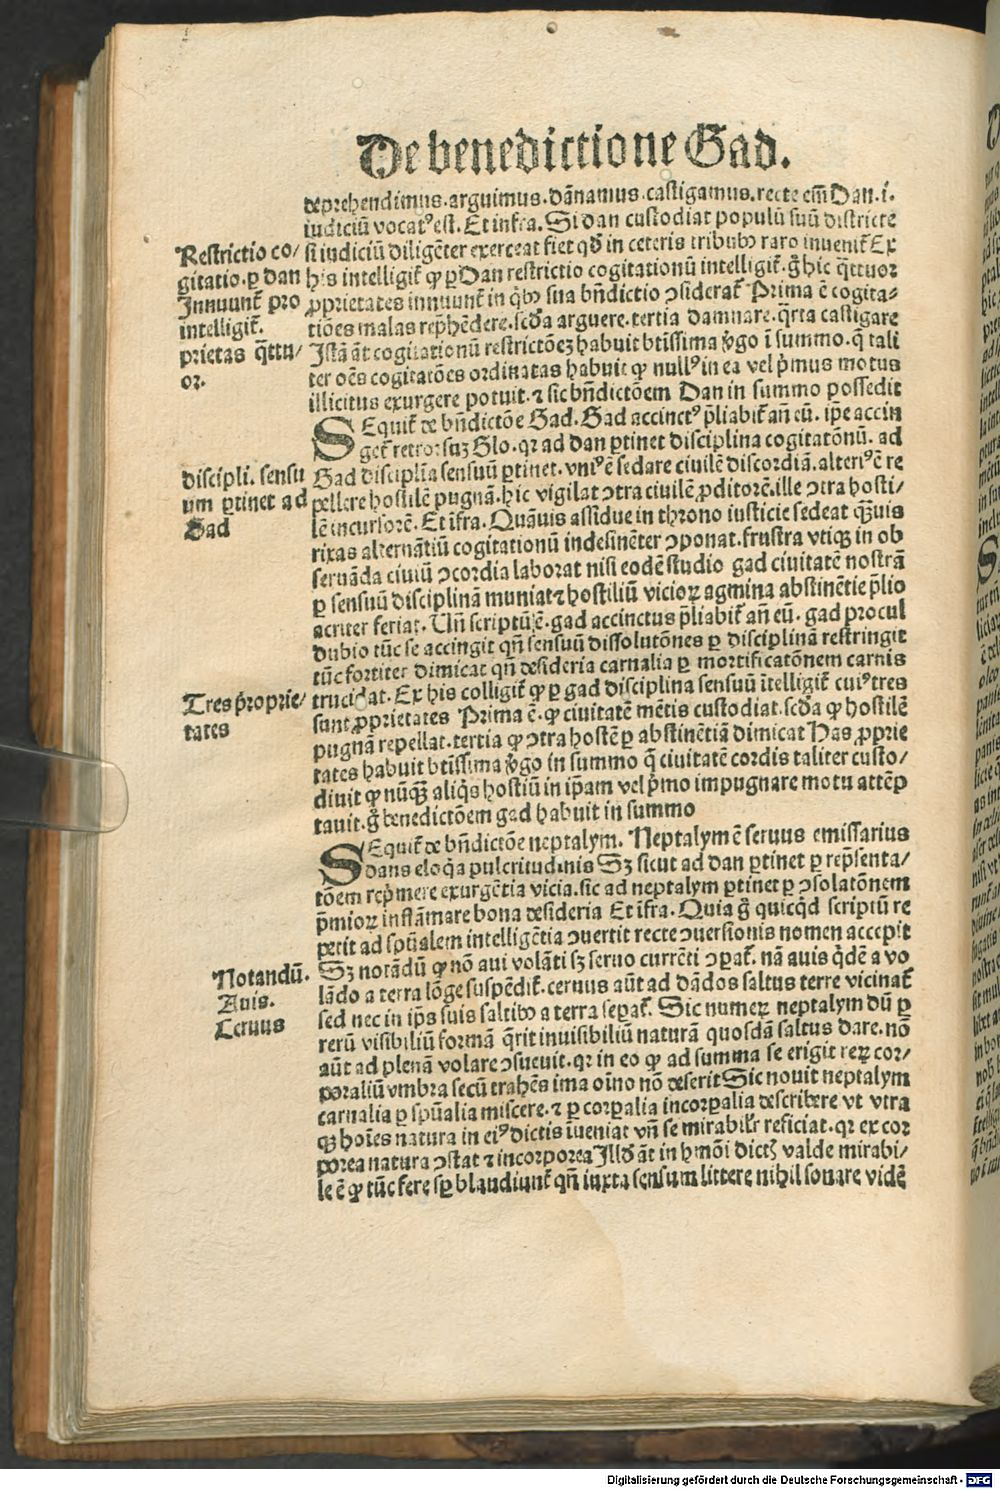 De benedictione Gad.
deprehendimus.arguimus.dānamus.castigamus.recte em̄ Dan.i.
iudiciū vocatꝰ est. Et infra. Si dan custodiat populū suū districte
si iudiciū diligēter exerceat fiet qđ in ceteris tribubꝫ raro inuenit᷑ Ex
his intelligit᷑ ꝙ ꝑ Dan restrictio cogitationū intelligit᷑. g̊ hic q̄ttuor
ꝓprietates innuunt᷑ in qͥbꝫ sua bn̄dictio ꝯsiderat᷑ Prima ē cogita-
tiōes malas rep̄hēdere.scđa arguere.tertia damnare.q̄rta castigare
Istā āt cogitationū restrictōeꝫ habuit btīssima ṽgo ī summo. q̄ tali
ter oēs cogitatōes ordinatas habuit ꝙ nullꝰ in ea vel pͥmus motus
illicitus exurgere potuit. ⁊ sic bn̄dictōem Dan in summo possedit
SEquit᷑ de bn̄dictōe Gad. Gad accinctꝰ p̄liabit᷑ an̄ eū. ip̄e accin
get᷑ retrorsuꝫ Glo. qꝛ ad dan ꝑtinet disciplina cogitatōnū. ad
Gad disciplīa sensuū ꝑtinet. vniꝰ ē sedare ciuilē discordiā. alteriꝰ ē re
pellere hostilē pugnā. hic vigilat ꝯtra ciuilē ꝓditorē. ille ꝯtra hosti/
lē incursorē. Et īfra. Quāuis assidue in throno iusticie sedeat qͣ̄uis
rixas alternātiū cogitationū indesinēter ꝯponat. frustra vtiqꝫ in ob
seruāda ciuiū ꝯcordia laborat nisi eodē studio gad ciuitatē nostrā
ꝑ sensuū disciplinā muniat ⁊ hostiliū vicioꝝ agmina abstinētie p̄lio
acriter feriat. Un̄ scriptū ē. gad accinctus p̄liabit᷑ an̄ eū. gad procul
dubio tūc se accingit qn̄ sensuū dissolutōnes ꝑ disciplinā restringit
tūc fortiter dimicat qn̄ desideria carnalia ꝑ mortificatōnem carnis
trucidat. Ex his colligit᷑ ꝙ ꝑ gad disciplina sensuū ītelligit᷑ cuiꝰ tres
sunt ꝓprietates Prima ē. ꝙ ciuitatē mētis custodiat. scđa ꝙ hostilē
pugnā repellat. tertia ꝙ ꝯtra hostē ꝑ abstinētiā dimicat Has ꝓprie
tates habuit btīssima ṽgo in summo q̄ ciuitatē cordis taliter custo/
diuit ꝙ nūqͣ̄ aliqͥs hostiū in ip̄am vel pͥmo impugnare motu attēp
tauit. g̊ benedictōem gad habuit in summo
SEquit᷑ de bn̄dictōe neptalym. Neptalym ē seruus emissarius
dans eloqͥa pulcritudinis Sꝫ sicut ad dan ꝑtinet ꝑ rep̄senta/
tōem repͥmere exurgētia vicia. sic ad neptalym ꝑtinet ꝑ ꝯsolatōnem
p̄mioꝝ inflāmare bona desideria Et īfra. Quia g̊ quicqͥd scriptū re
petit ad sp̄ualem intelligētia ꝯuertit recte ꝯuersionis nomen accepit
Sꝫ notādū ꝙ nō aui volāti sꝫ seruo currēti ꝯꝑat᷑. nā auis qͥdē a vo
lādo a terra lōge suspēdit᷑. ceruus aūt ad dādos saltus terre vicinat᷑
sed nec in ip̄s suis saltibꝫ a terra seꝑat᷑. Sic numeꝝ neptalym dū ꝑ
rerū visibiliū formā q̄rit inuisibiliū naturā quosdā saltus dare. nō
aūt ad plenā volare ꝯsueuit. qꝛ in eo ꝙ ad summa se erigit reꝝ cor/
poraliū vmbra secū trahēs ima oīno nō deserit Sic nouit neptalym
carnalia ꝑ sp̄ualia miscere. ⁊ ꝑ corꝑalia incorꝑalia describere vt vtra
qꝫ hoīes natura in eiꝰ dictis īueniat vn̄ se mirabilr̄ reficiat. qꝛ ex cor
porea natura ꝯstat ⁊ incorporea Illđ āt in hmōi dictꝭ valde mirabi/
le ē ꝙ tūc fere sꝑ blandiunt᷑ qn̄ iuxta sensum littere nihil sonare vidē
Restrictio co/
gitatio. ꝑ dan
Innuunt᷑ pro
intelligit᷑.
prietas q̄ttu/
or.
discipli. sensu
um ꝑtinet ad
Gad
Tres p̊roprie/
tates
Notandū.
Auis.
Ceruus
Digitalisierung gefördert durch die Deutsche Forschungsgemeinschaft - DFG